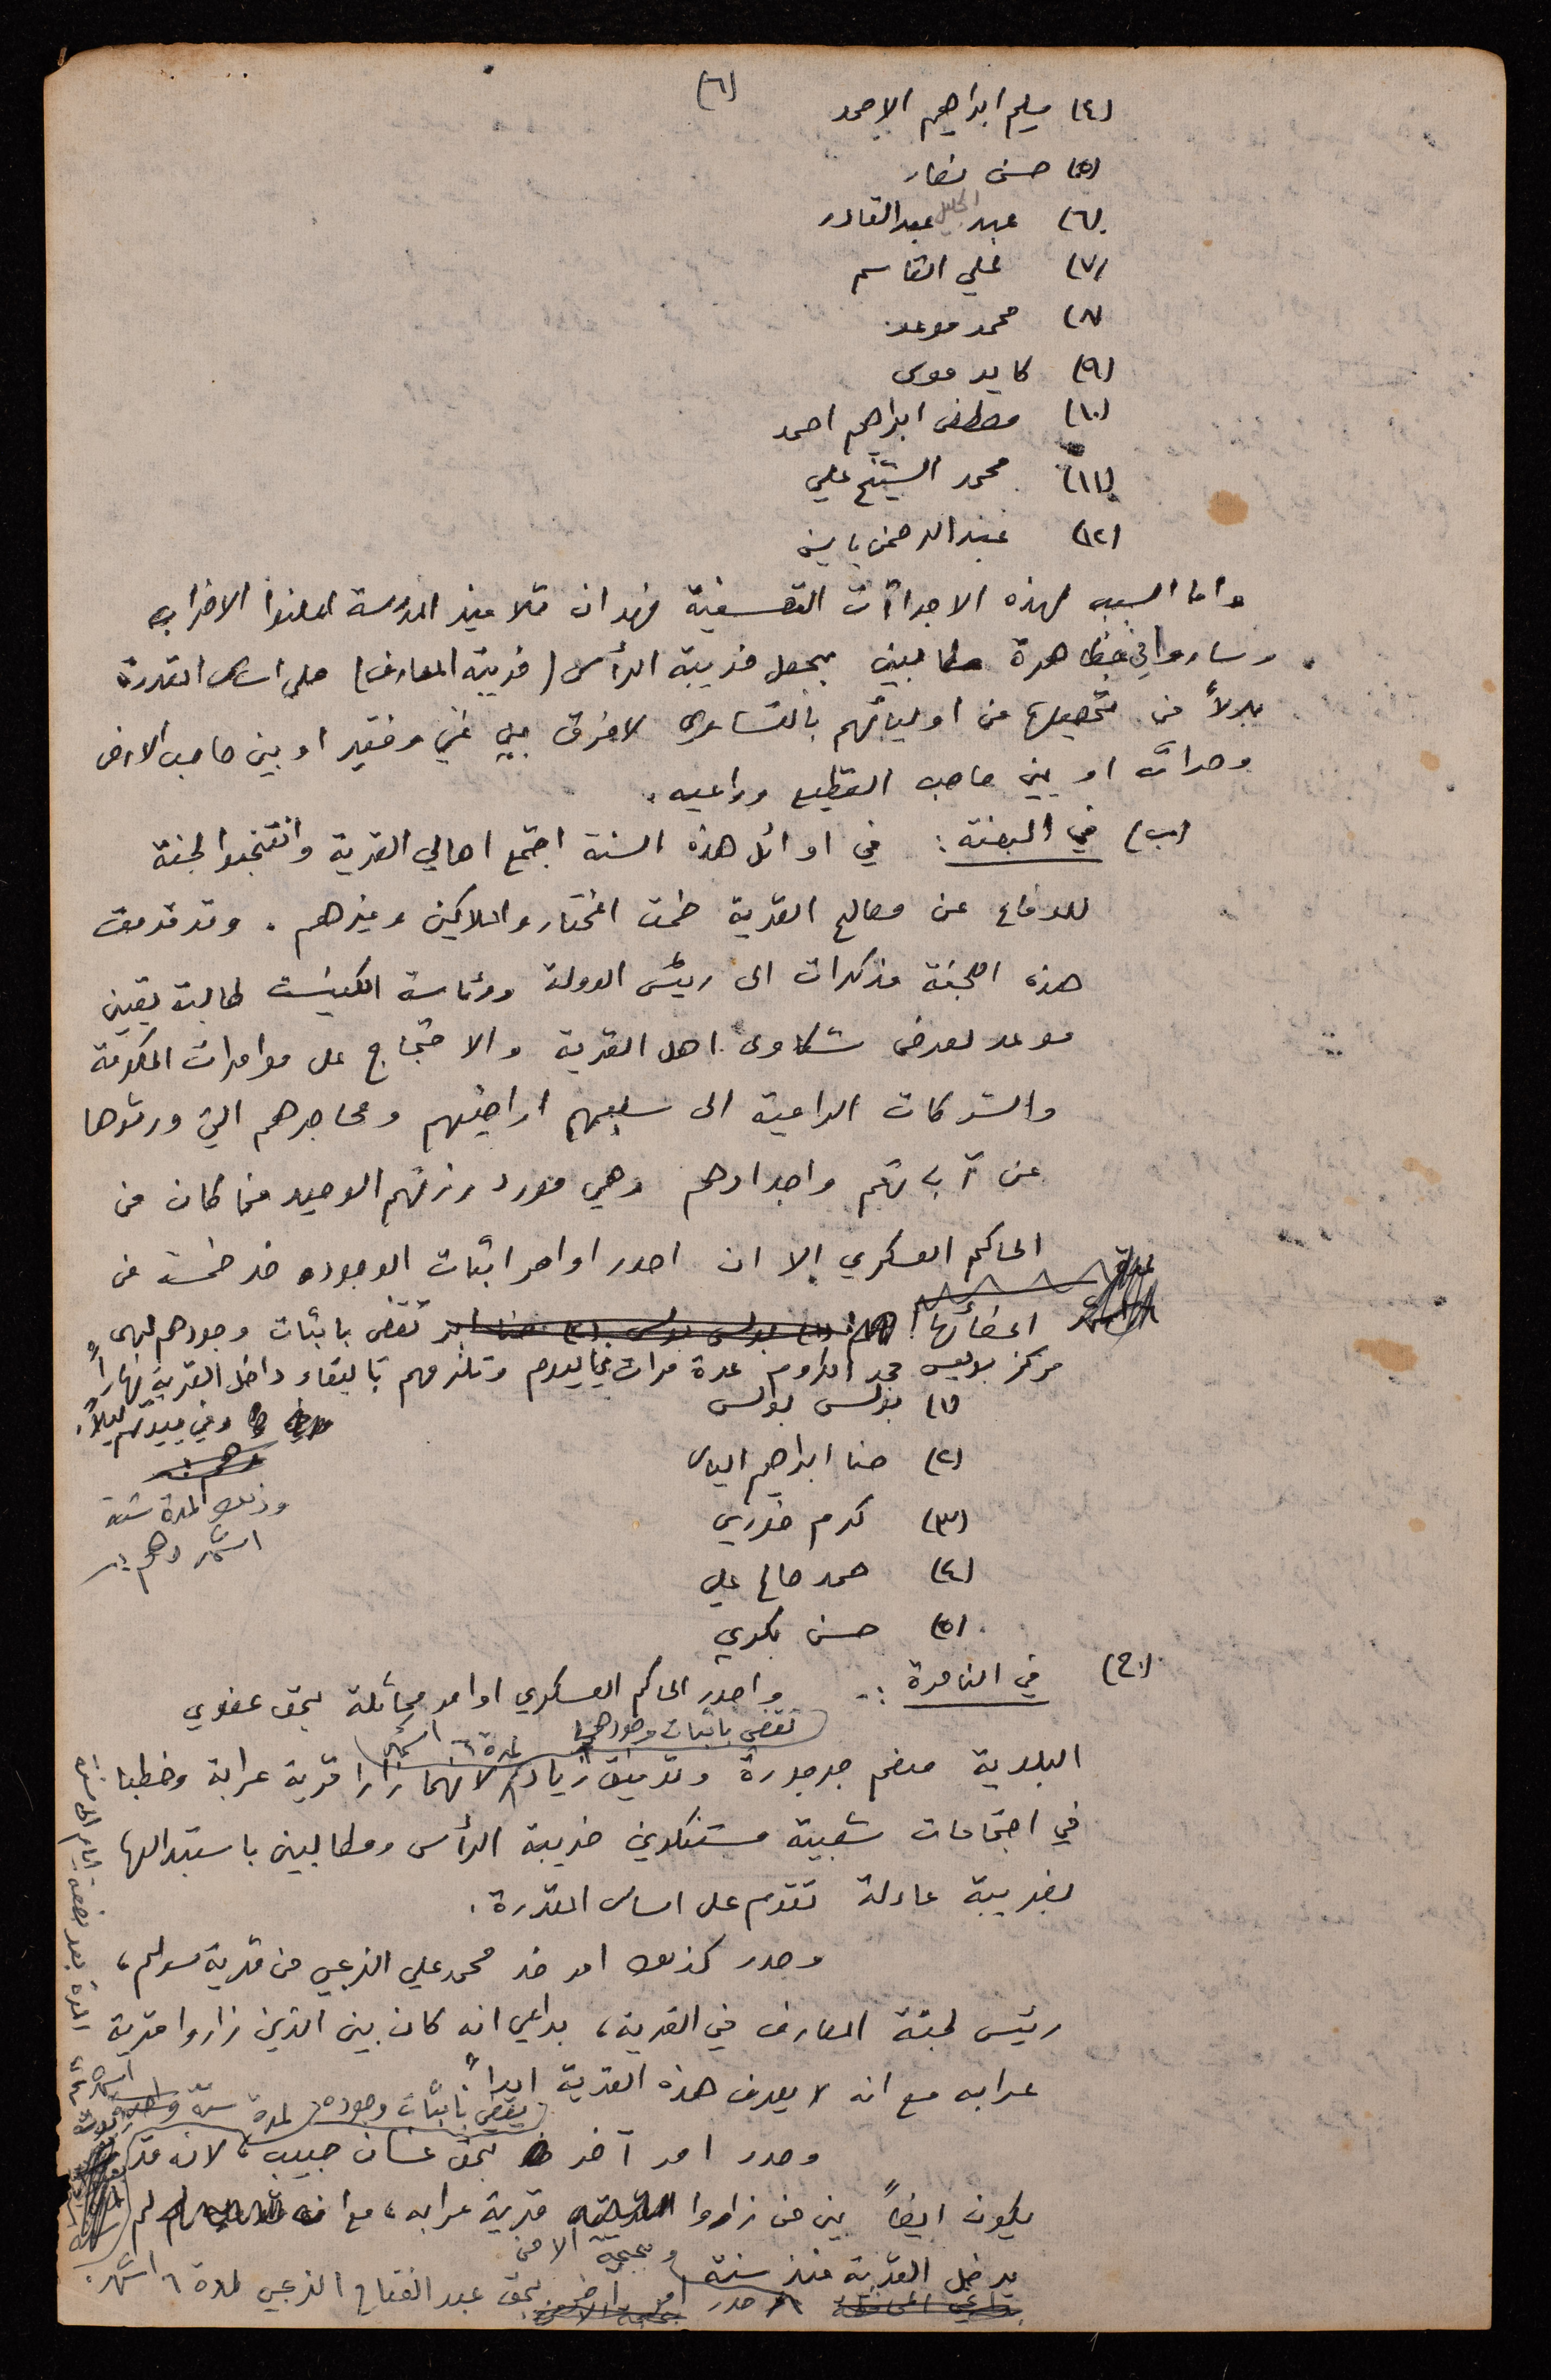 (٦)
(٤) سليم ابراهيم الاحمد
(٥) حسن نصار
(٦) عبد الجليل عبدالقادر
(٧) علي القاسم
(٨) محمد موعد
(٩) كايد موسى
(١٠) مصطفى ابراهيم احمد
(١١) محمد الشيخ علي
(١٢) عبدالرحمن ياسين
واما السبب لهذه الاجراآت التعسفية فهو ان تلاميذ المدرسة اعلنوا الاضراب
وساروا في مظاهرة مطالبين بجعل ضريبة الرأس (ضريبة المعارف) على اساس القدرة
بدلاً من تحصيلها من اوليائهم بالتساوى لا فرق بين غني وفقير او بين صاحب الارض
وحراث او بين صاحب القطيع وراعيه.
(ب) في البعنة: في اوائل هذه السنة اجتمع اهالي القرية وانتخبوا لجنة
للدفاع عن مصالح القرية ضمت المختار والملاكين وغيرهم. وقد قدمت
هذه اللجنة مذكرات الى رئيس الدولة ورئاسة الكنيست طالبة تعيين
موعد لعرض شكاوى اهل القرية والاحتجاج على مؤامرات الحكومة
والشركات الرامية الى سلبهم اراضيهم ومحاجرهم التي ورثوها
عن آبائهم واجدادهم وهي مورد رزقهم الوحيد فما كان من
الحاكم العسكري إلا ان اصدر اوامر اثبات الوجود ضد خمسة من
اعضائها (١) بولس بولس (٢) حنا ابر تقضى باثبات وجودهم لدى
مركز بوليس مجد الكروم عدة مرات في اليوم وتلزمهم بالبقاء داخل القرية نهاراً
وفي بيوتهم ليلاً.
وهم:
وذلك لمدة ستة
اشهر وهم:
(١) بولس بولس
(٢) حنا ابراهيم الياس
(٣) كرم خوري
(٤) حمد صالح علي
(٥) حسن بكري
(ج) في الناصرة:- واصدر الحاكم العسكري اوامر مماثلة بحق عضوي
تقضي باثبات وجودهما لمدة ٦ اشهر
البلدية منعم جرجورة وتوفيق زياد لانهما زارا قرية عرابة وخطبا
في اجتماعات شعبية مستنكرين ضريبة الرأس ومطالبين باستبدالها
بضريبة عادلة تقوم على اساس المقدرة.
وصدر كذلك امر ضد محمد علي الزعبي من قرية سولم،
رئيس لجنة المعارف في القرية، بداعي انه كان بين الذين زاروا قرية
عرابه مع انه لا يعرف هذه القرية ابداً.
يقضي باثبات وجوده لمدة ستة اشهر
وصدر امر آخر بحق غسان حبيب، لانه قد
يكون ايضاً بين من زاروا قرية عرابه، مع انه لم
يدخل القرية منذ سنة وبحجة الامن
صدر امر آخر بحق عبد الفتاح الزعبي لمدة ٦ اشهر.